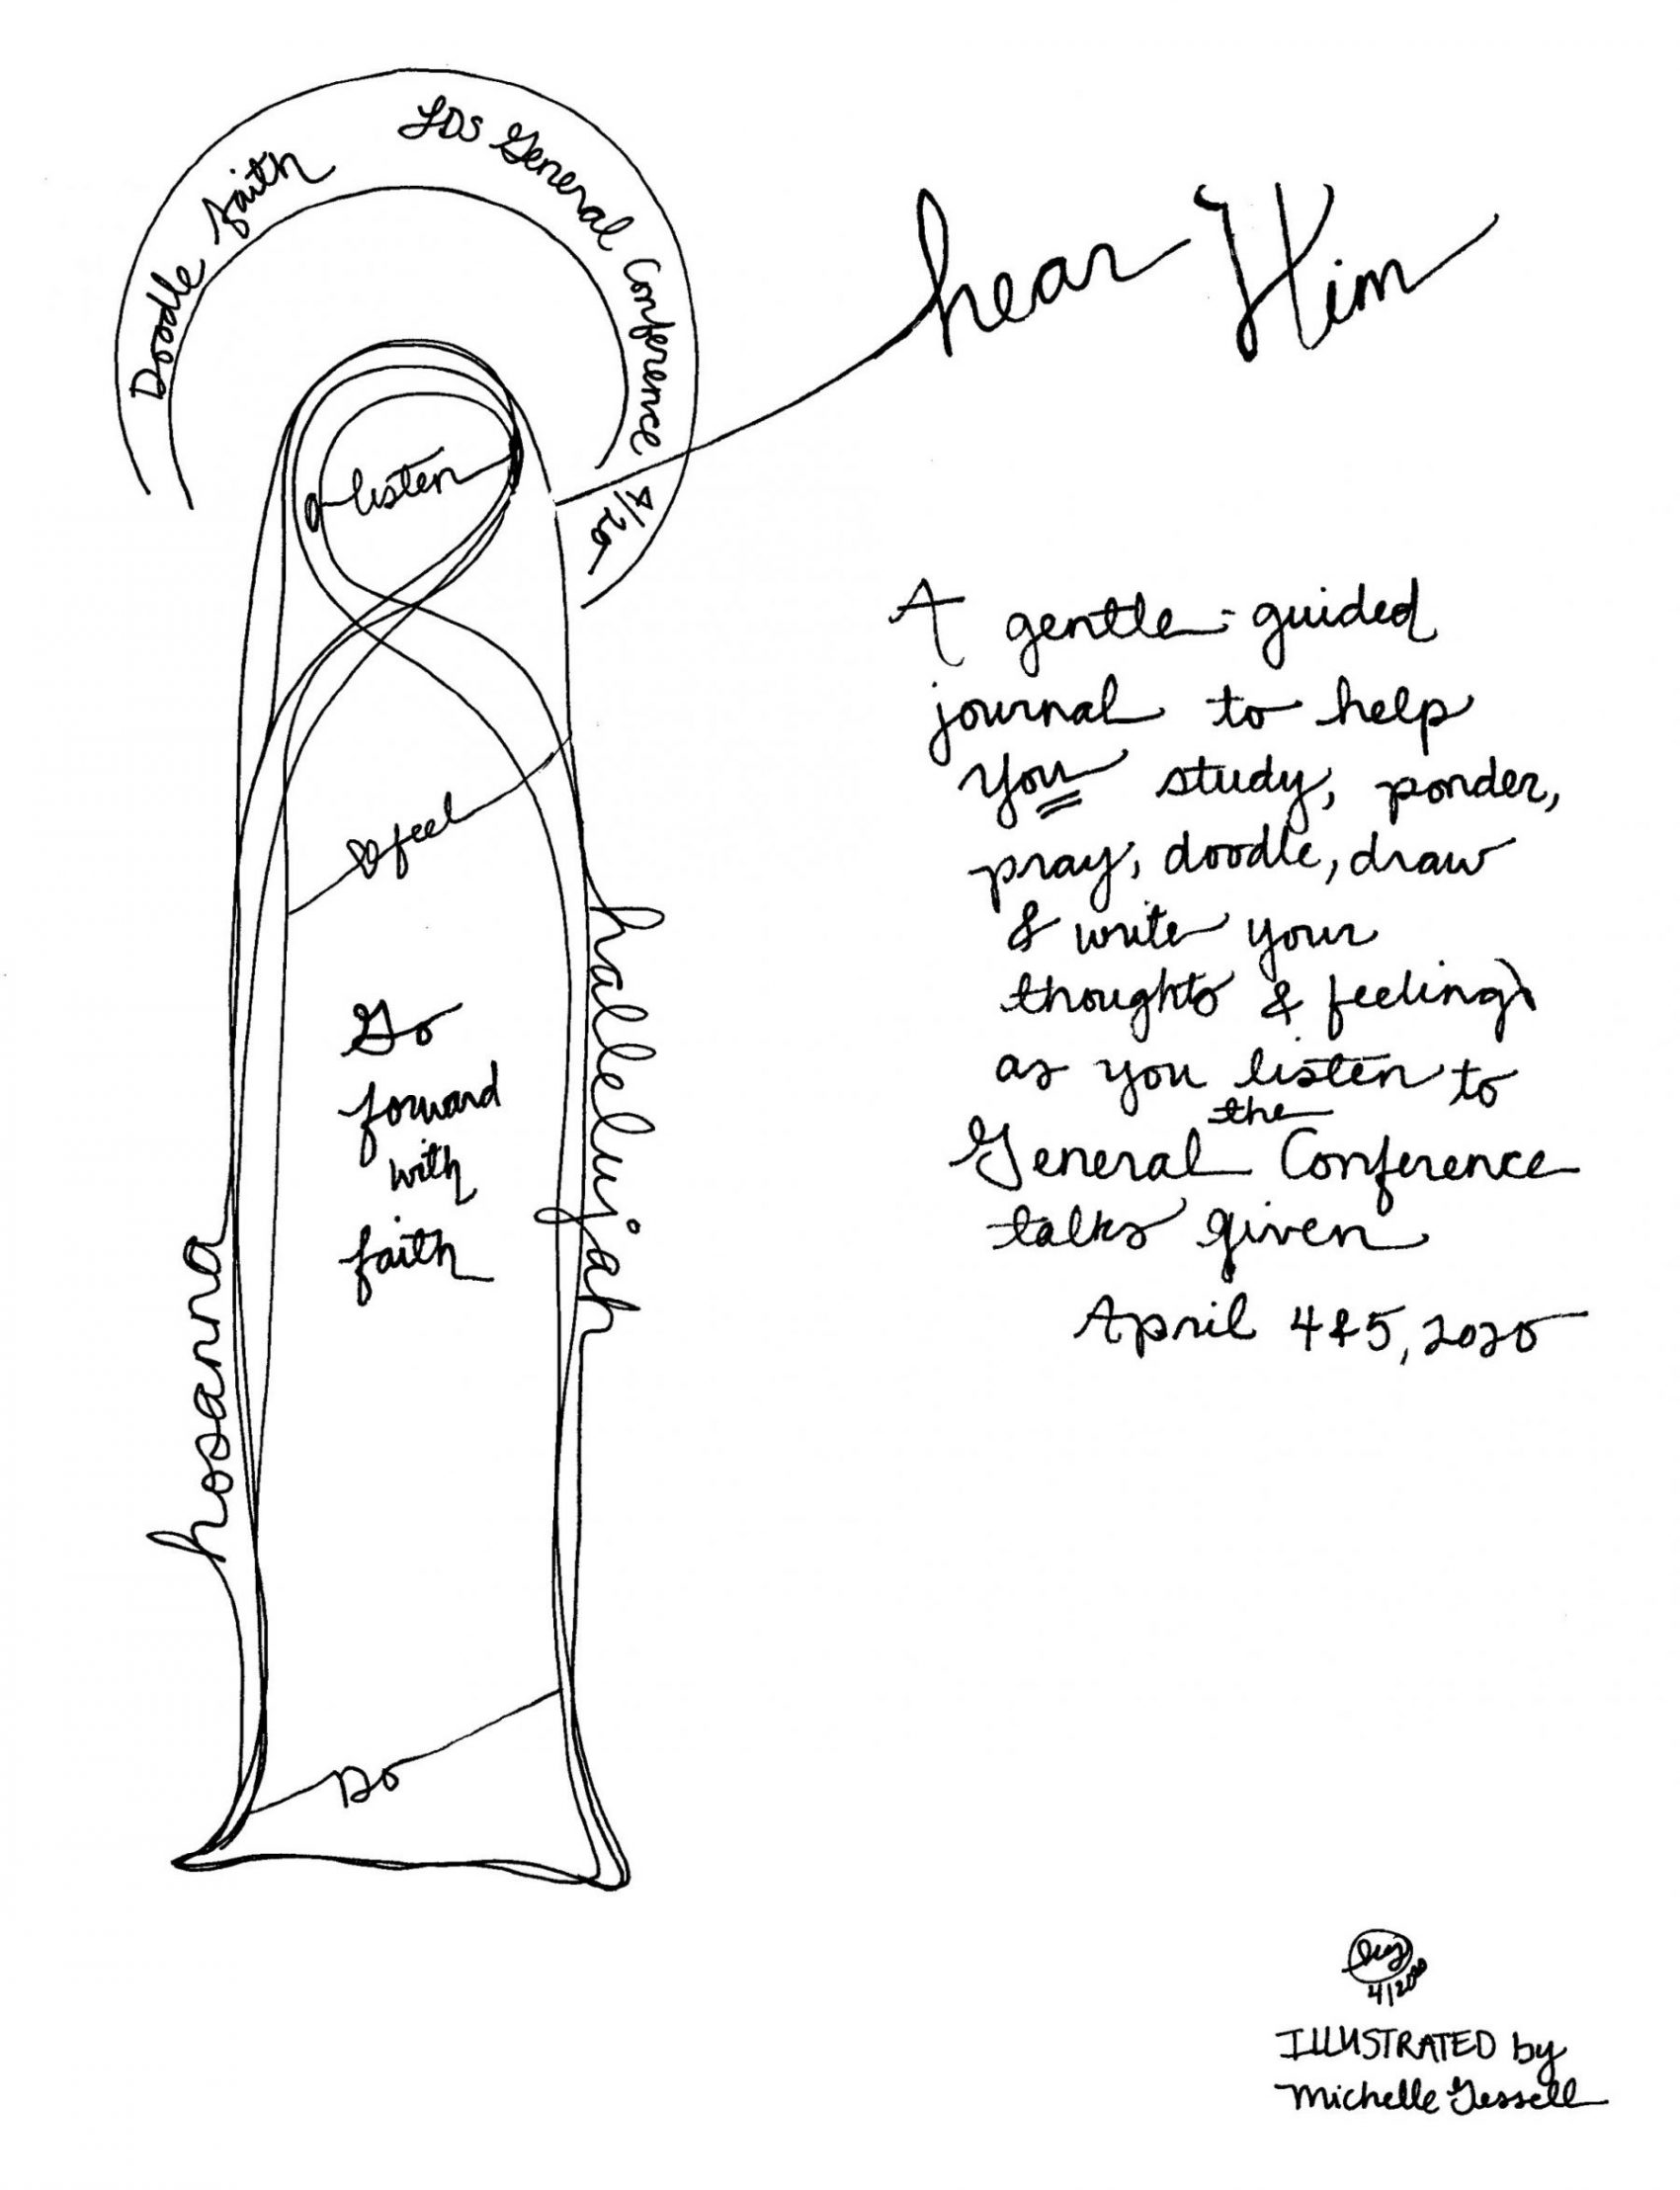 Doodle faith
LDS General Conference
4/20
hear Him
listen
feel
Go
forward
with
faith
hosanna
hallelujah
Do
A gentle-guided
journal to help
you study, ponder,
pray, doodle, draw
& write your
thoughts & feelings
as you listen to
the
General Conference
talks given
April 4&5, 2020
ILLUSTRATED by
Michelle Gessell